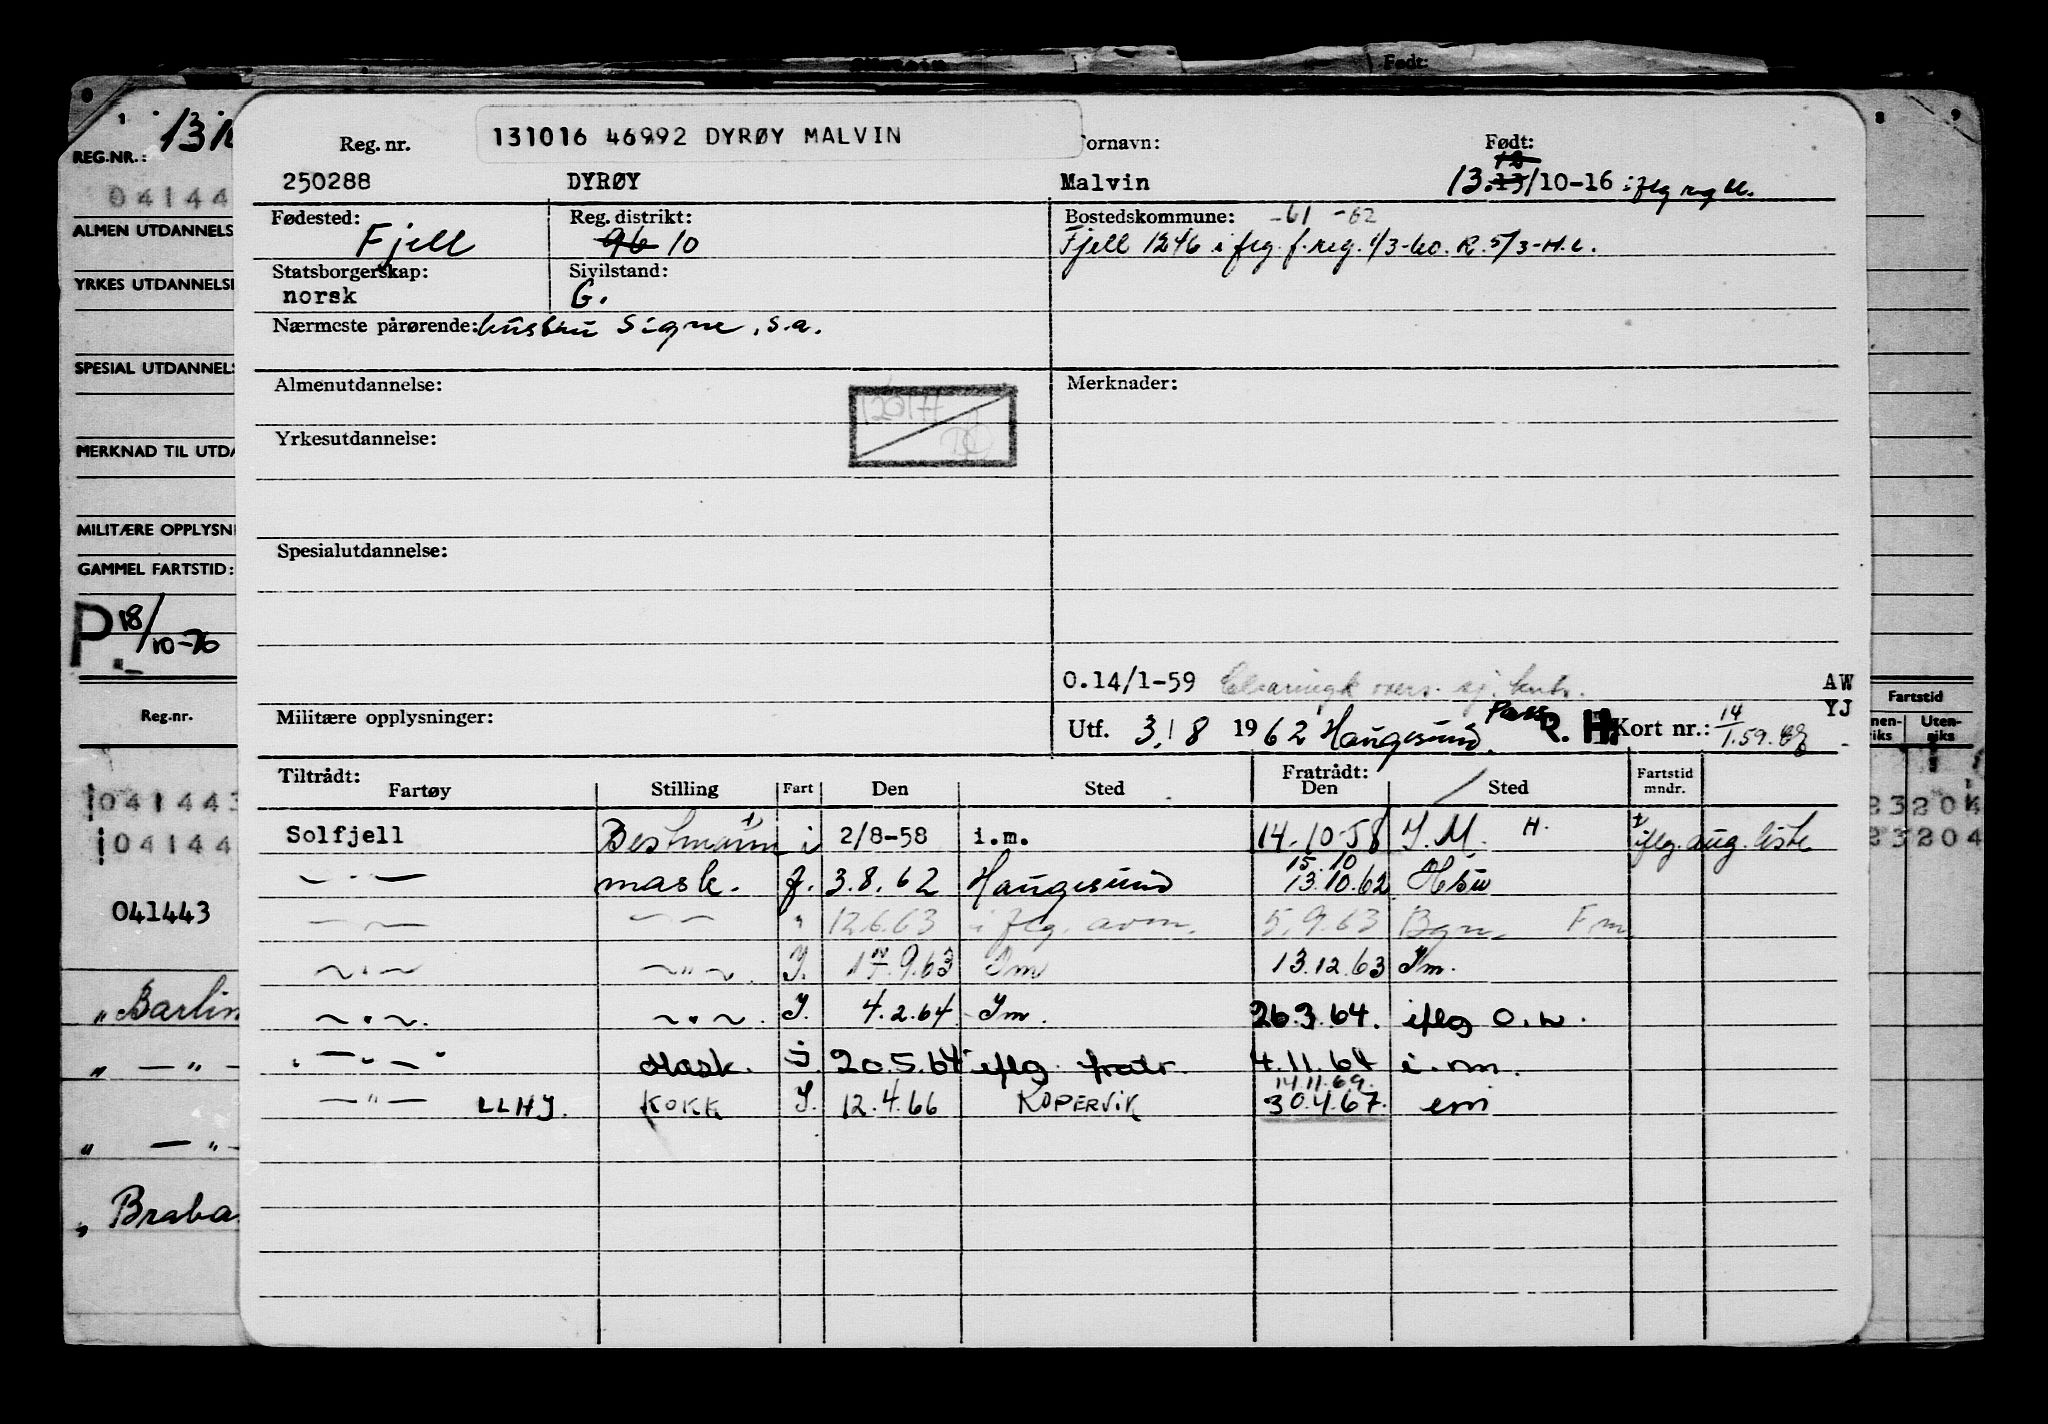 Født:
1 1310 8 9
REG.NR.:
04144
ALMEN UTDANNELS
YRKES UTDANNELSE
SPESIAL UTDANNELS
MERKNAD TIL UTDA
MILITÆRE OPPLYSNI
GAMMEL FARTSTID:
P 18/10-76
Reg.nr.
041443
04144
041443
"Barlin
" — " —
" — " —
" Braba
Reg. nr. 131016 46992 DYRØY MALVIN Fornavn: Født:
250288 DYRØY Malvin 13. 13/10-16 iflg
Fødested: Fjell Reg. distrikt: 96 10 Bostedskommune: -61 -62
Fjell 1246 iflg. f.reg. 1/3-60. R. 5/3-H.L.
Statsborgerskap: norsk Sivilstand: G.
Nærmeste pårørende: hustru Signe, s.a.
Almenutdannelse: Merknader:
Yrkesutdannelse:
Spesialutdannelse:
O.14/1-59 AW
Militære opplysninger: Utf. 3/8 1962 Haugesund. Pass R. H. Kort nr.: 14/1.59. YJ
Tiltrådt: Fratrådt: Fartstid
Fartøy Stilling Fart Den Sted Den Sted mndr.
Solfjell Bestmann i 2/8-58 i.m. 14.10.58 I.M. H. iflg. aug. liste
— " — mask. f. 3.8.62 Haugesund 15.10 13.10.62 Hsu
— — — — " 12.6.63 iflg. avm. 5.9.63 Bgn. F.m
~ " ~ ~ " ~ I. 17.9.63 Im 13.12.63 Im.
~ " ~ ~ " ~ I. 4.2.64 Im. 26.3.64. iflg O.L.
— " — Mask. i 20.5.64 iflg. fratr. 4.11.64 i.m.
— " — LLHJ. KOKK I. 12.4.66 KOPERVIK 14.11.69. 30.4.67. em
Fartstid
nen-riks Uten-riks
23204
23204